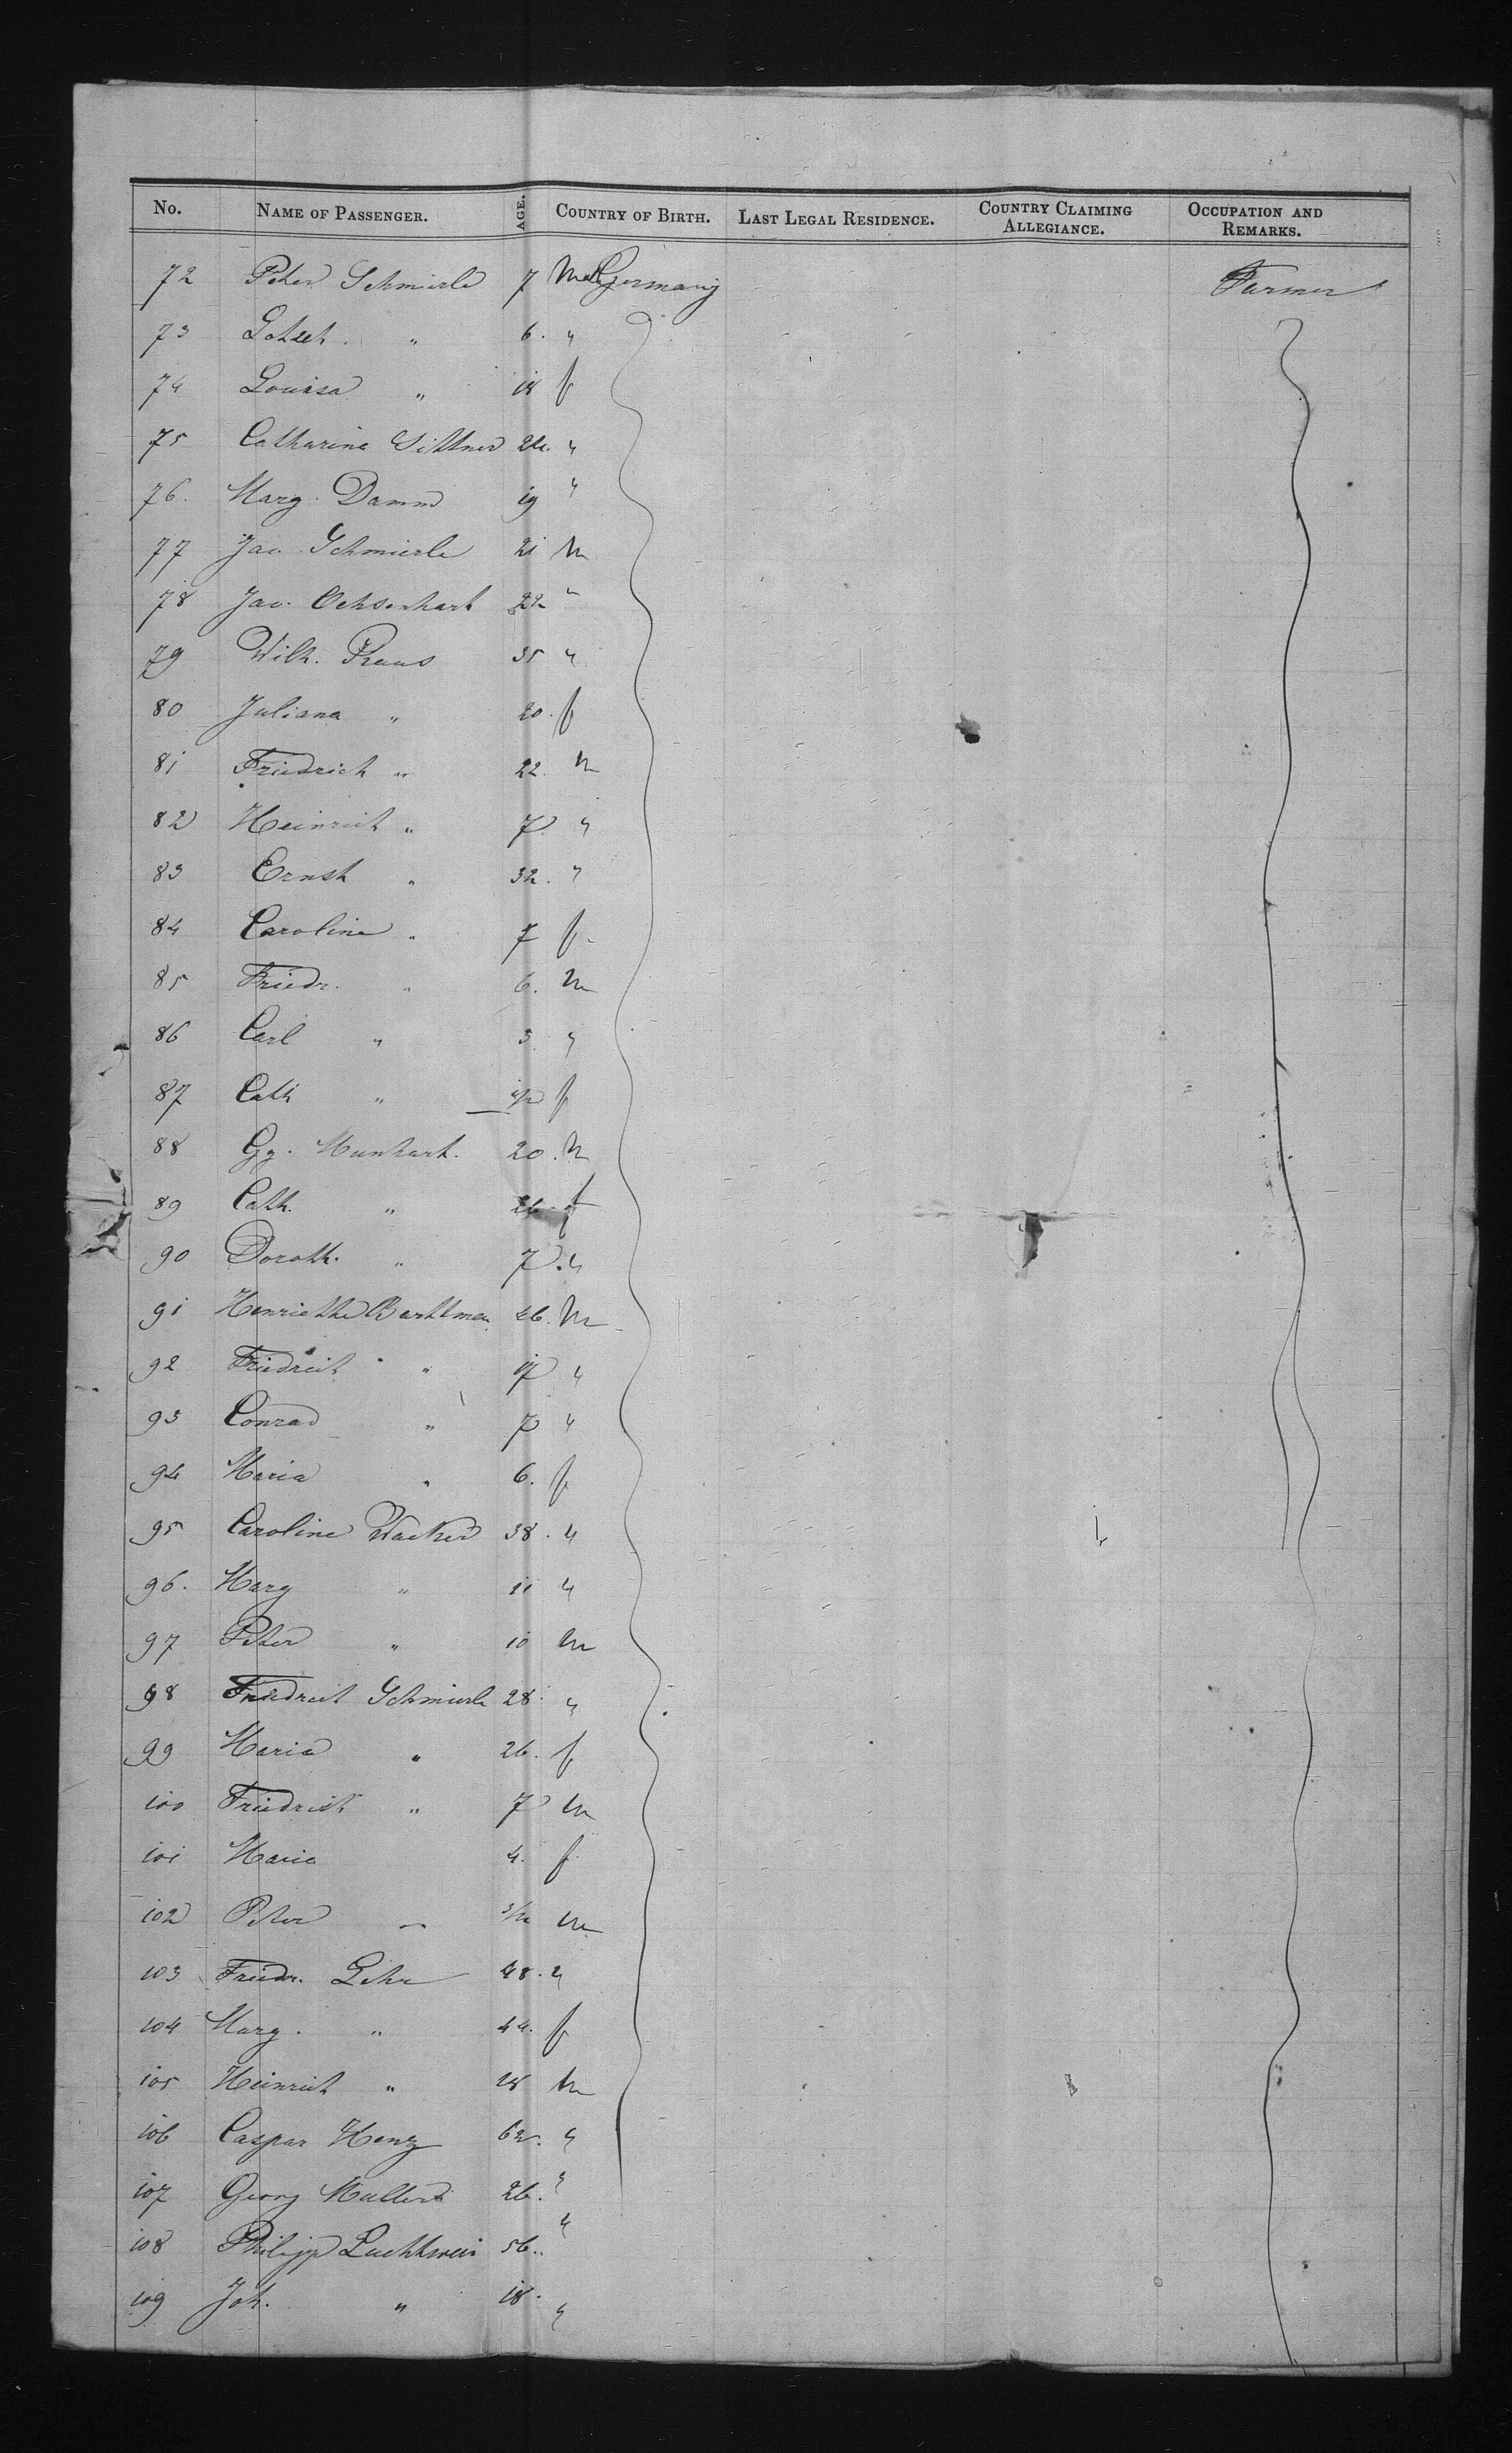 No. NAME OF PASSENGER. AGE. COUNTRY OF BIRTH. LAST LEGAL RESIDENCE. COUNTRY CLAIMING ALLEGIANCE. OCCUPATION AND REMARKS.
72 Peter Schmierle 7 Male Germany Farmer
73 " 6. "
74 Louisa " 18 f
75 Catharina Sittner 24. "
76. Marg. Damm 19 "
77 Jac. Schmierle 21 m
78 Jac. Ochsenhart 22 "
79 Wilh. Praus 35 "
80 Juliana " 20. f
81 Friedrich " 22. m
82 Heinrich " 7 "
83 Ernst " 32. "
84 Caroline " 7 f.
85 Friedr. " 6. m
86 Carl " 3 "
87 Cath " f
88 Gg. Munkart. 20. m
89 Cath. " 26. f
90 Doroth. " 7. "
91 Henriette 46. m
92 Friedrich " 17 "
93 Conrad " 7 "
94 Maria " 6. f
95 Caroline Wacker 38. "
96. Marg " 11 "
97 Peter " 10 m
98 Friedrich Schmierle 28. "
99 Maria " 26. f
100 Friedrich " 7 m
101 Maria 4. f
102 Peter " 3/12 m
103 Friedr. Lehr 48. "
104 Marg. " 44. f
105 Heinrich " 18 m
106 Caspar Henz 62. "
107 Georg Muller 26. "
108 Philipp 56. "
109 Joh. " 18. "